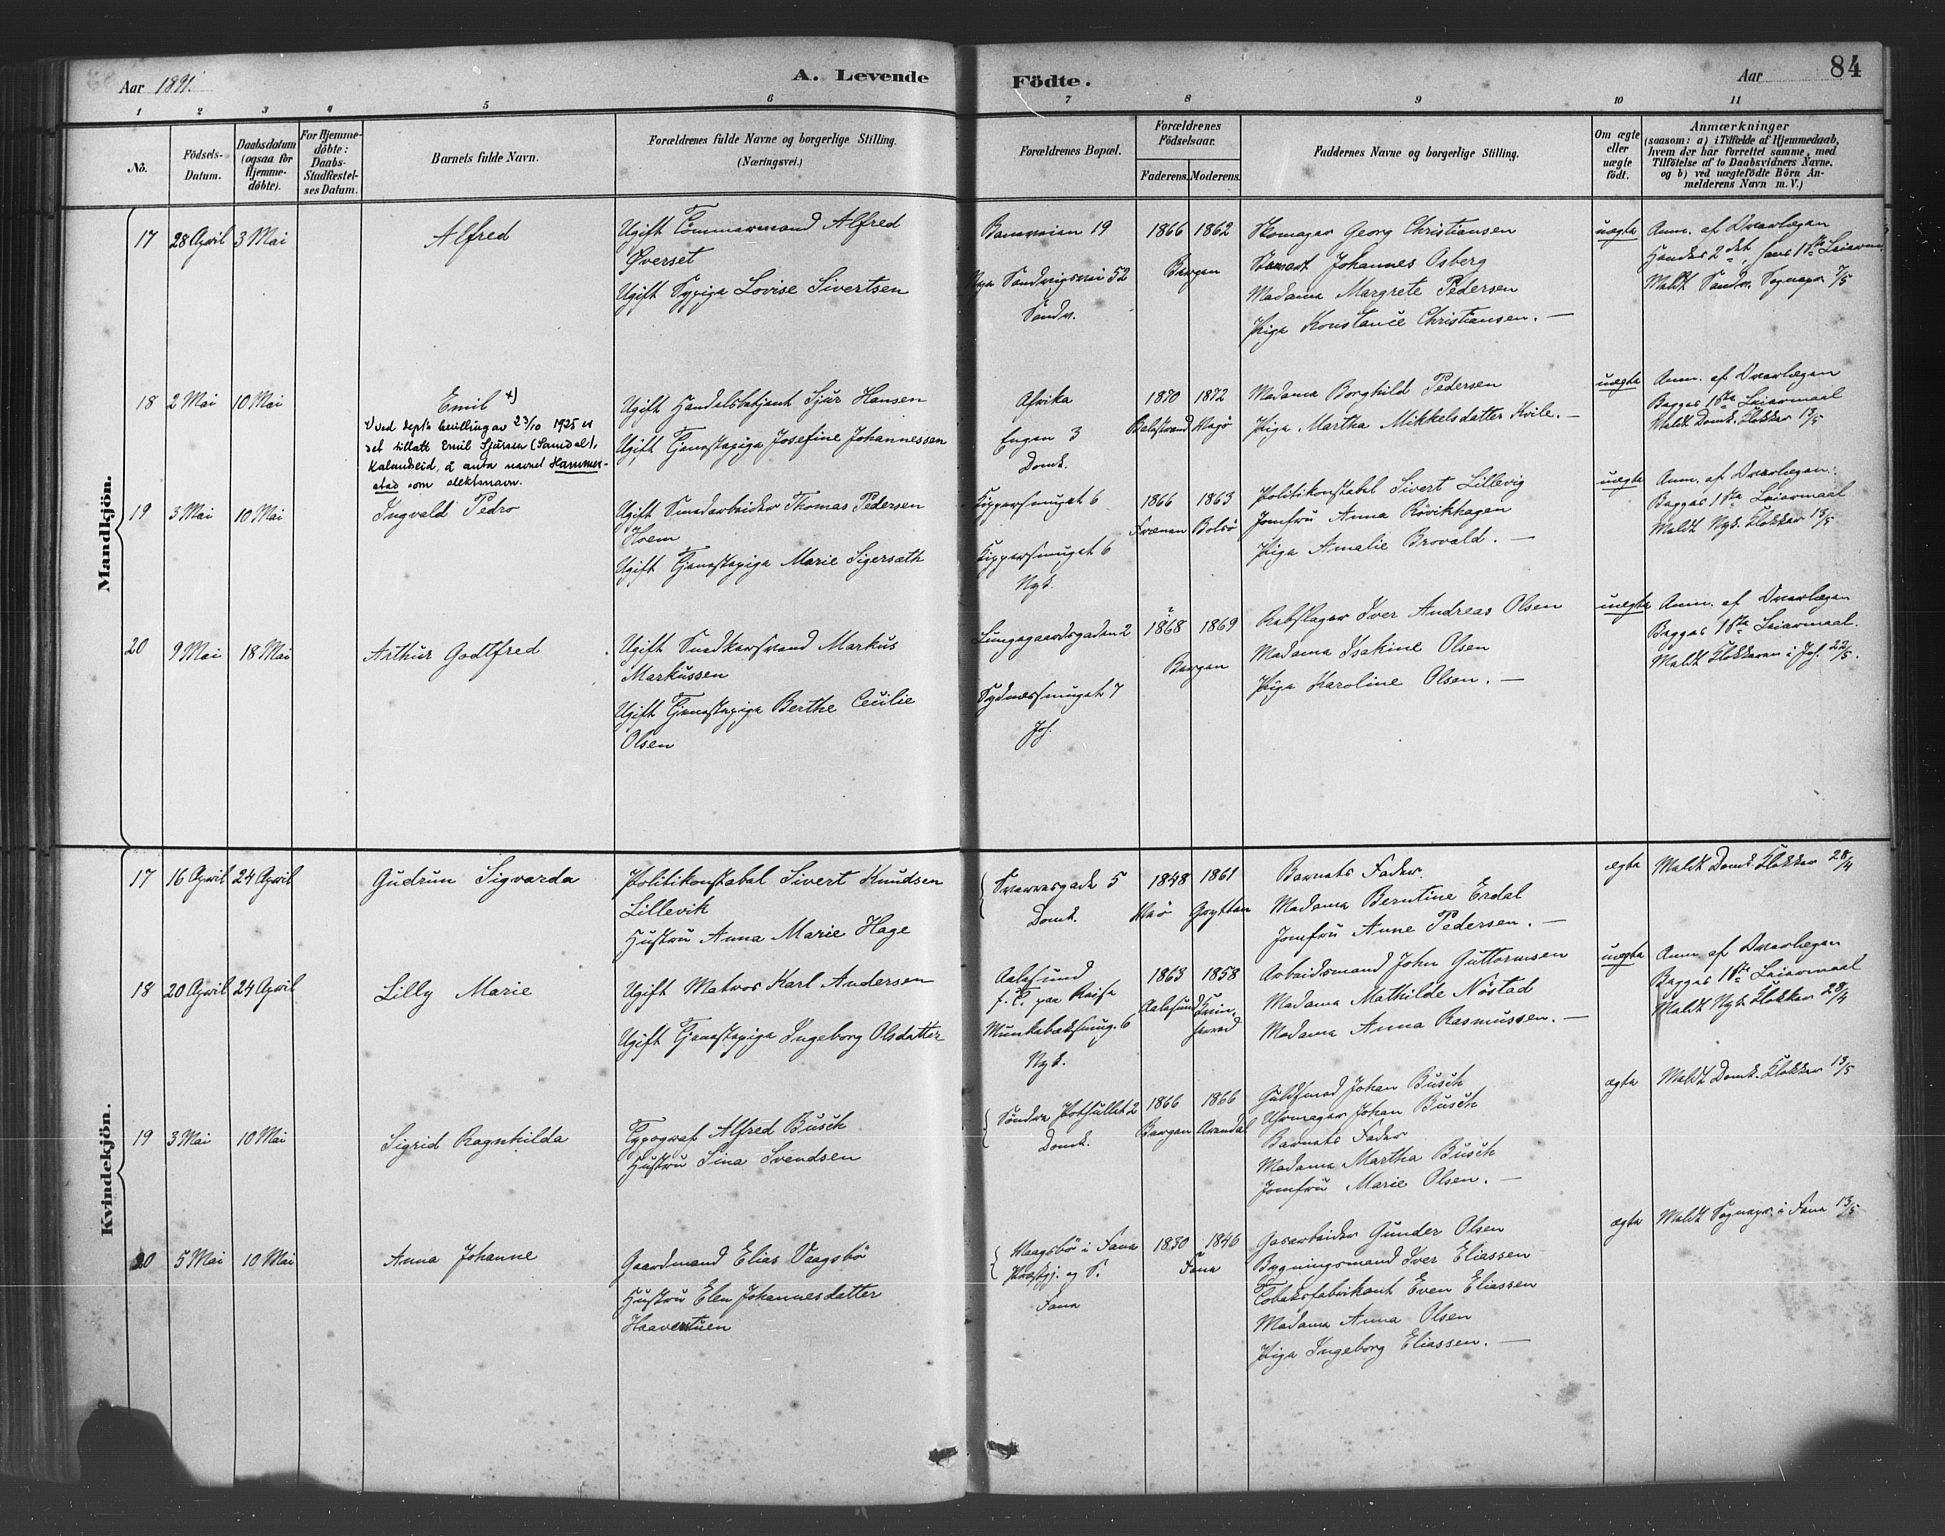 Aar 1891.
A. Levende
Födte.
Aar
84
1 2 3 4 5 6 7 8 9 10 11
No.
Födsels-
Datum.
Daabsdatum
(ogsaa for
Hjemme-
döbte).
For Hjemme-
döbte:
Daabs-
Stadfæstel-
ses Datum.
Barnets fulde Navn.
Forældrenes fulde Navne og borgerlige Stilling.
(Næringsvei.)
Forældrenes Bopæl.
Forældrenes
Födselsaar.
Faderens. Moderens.
Faddernes Navne og borgerlige Stilling.
Om ægte
eller
uægte
födt.
Anmærkninger
(saasom: a) i Tilfælde af Hjemmedaab,
hvem der har forrettet samme, med
Tilföielse af to Daabsvidners Navne.
og b) ved uægtefödte Börn An-
melderens Navn m. V.)
Mandkjön.
17 28 April 3 Mai
Alfred
Ugift Tömmermand Alfred
Øverset
Ugift Sypige Lovise Sivertsen
19
Nye Sandvigsvei 52
Sandv.
1866 1862
Bergen
Skomager Georg Christiansen
Johannes Osberg
Madame Margrete Pedersen
Pige Konstance Christiansen. —
uægte
Anm. af Overlægen
Handes 2det, hans 1ste Leierm.
Meldt Sandv. Sogneprs 7/5
18 2 Mai 10 Mai
Emil x)
x) ved dept's bevilling av 23/10 1925 er
det tillatt Emil Sjursen (Samdal),
Kalandseid, å anta navnet Hammer-
stad som slektsnavn.
Ugift Handelsbetjent Sjur Hansen
Ugift Tjenestepige Josefine Johannessen
Afrika
Engen 3
Domk.
1870 1872
Balestrand
Madame Borghild Pedersen
Pige Martha Mikkelsdatter Kvile. —
uægte
Anm. af Overlægen
Begges 1ste Leiermaal
Meldt Domk. Klokker 13/5
19 3 Mai 10 Mai
Ingvald Pedro
Ugift Smedarbeider Thomas Pedersen
Hoem
Ugift Tjenestepige Marie Sigerseth
Kippersmuget 6
Kippersmuget 6
Nyk.
1866 1863
Frænen Bolsö
Politikonstabel Sivert Lillevig
Jomfru Anna Rövikhagen
Pige Amalie Brovald. —
uægte
Anm. af Overlægen.
Begges 1ste Leiermaal
Meldt Nyk. Klokker 13/5
20 9 Mai 18 Mai
Arthur Godtfred
Ugift Snedkersvend Markus
Markussen
Ugift Tjenestepige Berthe Cecilie
Olsen
Lungegaardsgaden 2
Sydnessmuget 7
Joh.
1868 1869
Bergen
Rebslager Iver Andreas Olsen
Madame Isakine Olsen
Pige Karoline Olsen. —
uægte
Anm. af Overlægen
Begges 1ste Leiermaal.
Meldt Klokkeren i Joh. 22/5.
Kvindekjön.
17 16 April 24 April
Gudrun Sigvarda
Politikonstabel Sivert Knudsen
Lillevik
Hustru Anna Marie Hage
Sverresgade 5
Domk.
1848 1861
Grytten
Barnets Fader.
Madame Berntine Erdal
Jomfru Anne Pedersen. —
ægte
Meldt Domk. Klokker 28/4
18 20 April 24 April
Lilly Marie
Ugift Matros Karl Andersen
Ugift Tjenestepige Ingeborg Olsdatter
Aalesund
f. T. paa Reise
Munkebæksmug. 6
Nyk.
1863 1858
Aalesund Kvin-
herred
Arbeidsmand John Guttormsen
Madame Mathilde Nöstad
Madame Anna Rasmussen. —
uægte
Anm. af Overlægen
Begges 1ste Leiermaal
Meldt Nyk. Klokker 28/4
19 3 Mai 10 Mai
Sigrid Ragnhilda
Typograf Alfred Busch
Hustru Sina Svendsen
Söndre 2
Domk.
1866 1866
Bergen Arendal
Guldsmed Johan Busch
Uhrmager Johan Busch
Barnets Fader
Madame Martha Busch
Jomfru Marie Olsen. —
ægte
Meldt Domk. Klokker 13/5
20 5 Mai 10 Mai
Anna Johanne
Gaardmand Elias Vaagsbö
Hustru Elen Johannesdatter
Haavertuen
Vaagsbö i Fana
Præstgj. og S.
Fana
1850 1846
Fana
Gasarbeider Gunder Olsen
Bygningsmand Iver Eliassen
Tobaksfabrikant Even Eliassen
Madame Anna Olsen
Pige Ingeborg Eliassen. —
ægte
Meldt Sognepr. i Fana 13/5